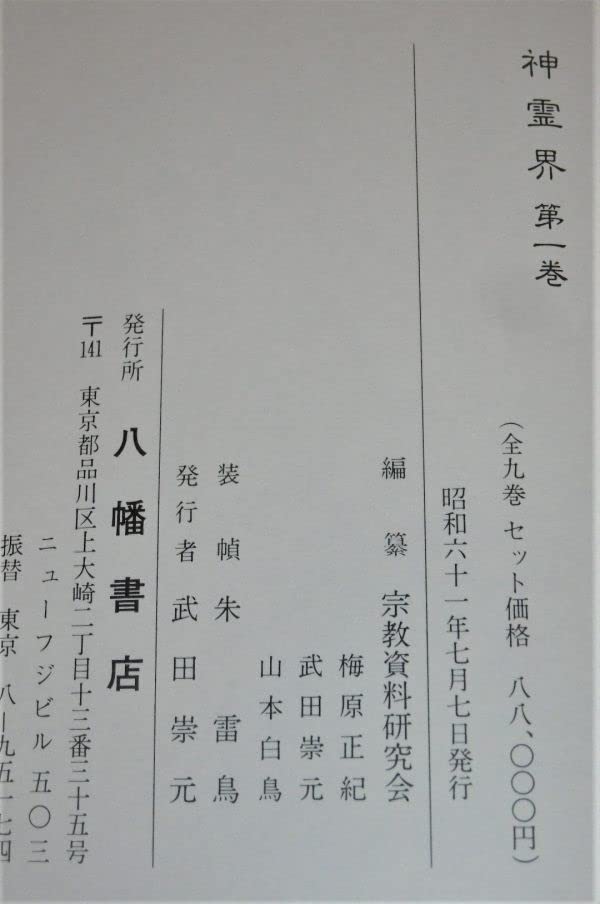 神霊界 第一巻
（全九巻 セット価格 八八、〇〇〇円）
昭和六十一年七月七日発行
編纂 宗教資料研究会
梅原正紀
武田崇元
山本白鳥
装幀 朱雷鳥
発行者 武田崇元
発行所 八幡書店
〒141 東京都品川区上大崎二丁目十三番三十五号
ニューフジビル 五〇三
振替 東京 八―九五一七四